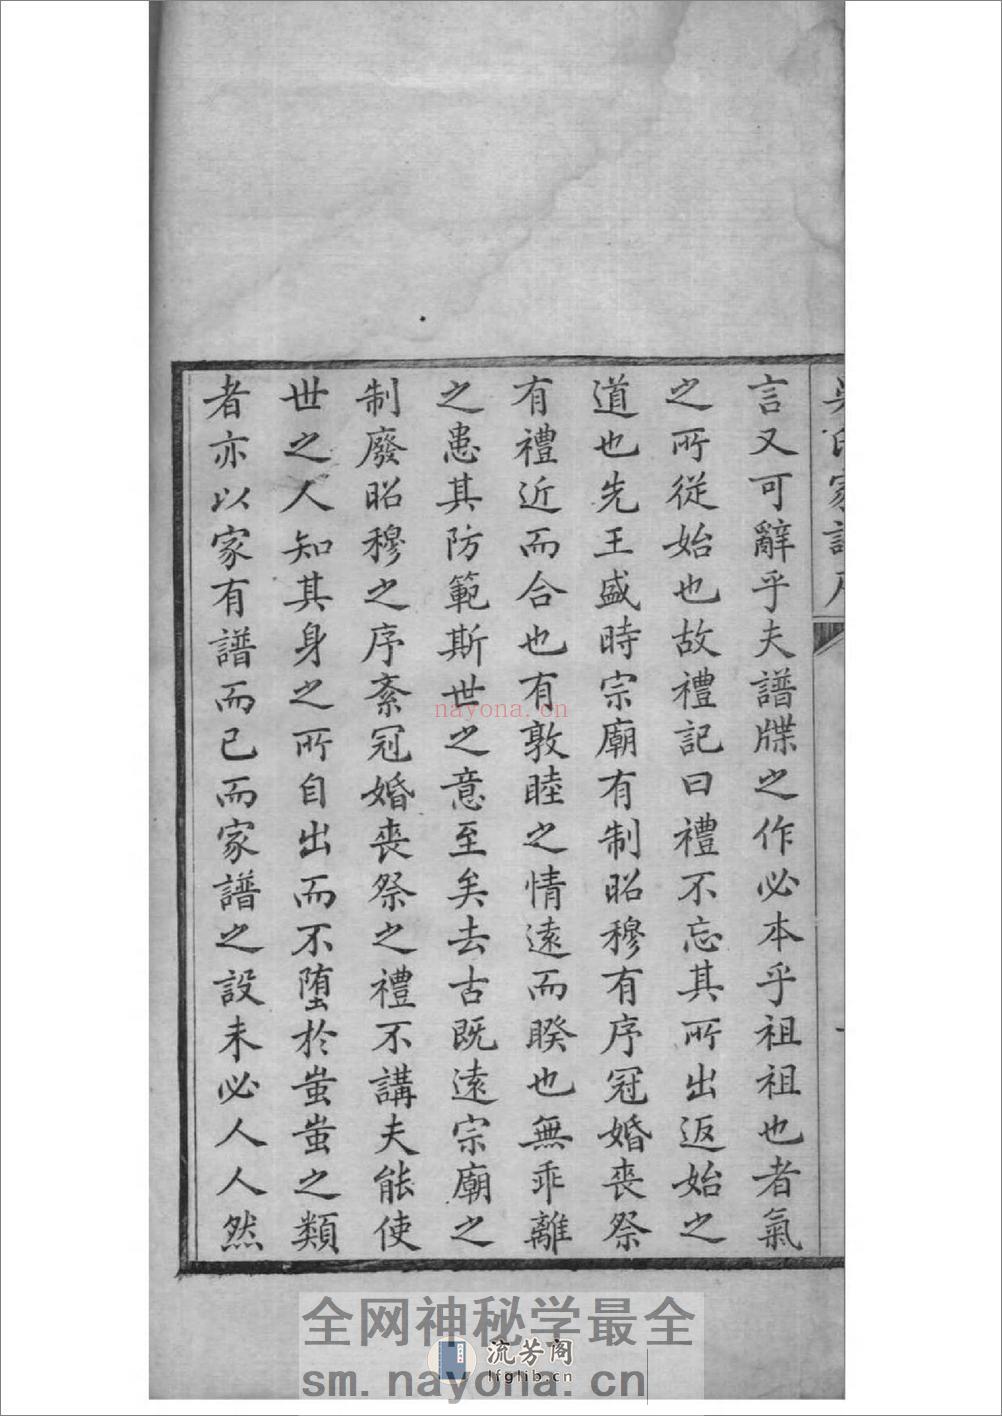 吳氏家譜序
言又可辭乎夫譜牒之作必本乎祖祖也者氣
之所從始也故禮記曰禮不忘其所出返始之
道也先王盛時宗廟有制昭穆有序冠婚喪祭
有禮近而合也有敦睦之情遠而睽也無乖離
之患其防範斯世之意至矣去古既遠宗廟之
制廢昭穆之序紊冠婚喪祭之禮不講夫能使
世之人知其身之所自出而不墮於蚩蚩之類
者亦以家有譜而已而家譜之設未必人人然
nayona.cn
全网神秘学最全
流芳阁
lfglib.cn
sm.nayona.cn